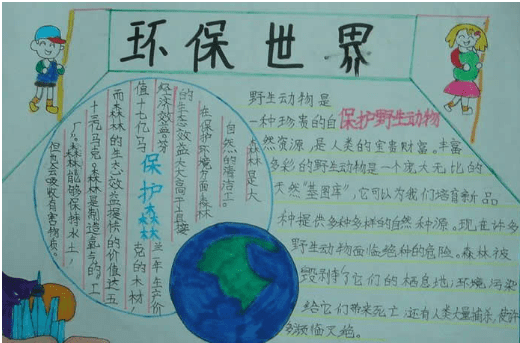 环保世界
森林是大
自然的清洁工。
在保护环境方面森林
的生态效益大大高于直接
经济效益。芬兰一年生产价
值十七亿马克的木材，
而森林的生态效益提供的价值达五
十三亿马克。森林是制造氧气的工
厂。森林能够保持水土，
但也会吸收有害物质。
保护森林
保护野生动物
野生动物是
一种珍贵的自
然资源，是人类的宝贵财富。丰富
多彩的野生动物是一个宠大无比的
天然“基因库”，它可以为我们培育新品
种提供多种多样的自然种源。现在许多
野生动物面临绝种的危险。森林被
毁剥夺了它们的栖息地，环境污染
给它们带来死亡，还有人类大量捕杀，使许
多濒临灭绝。